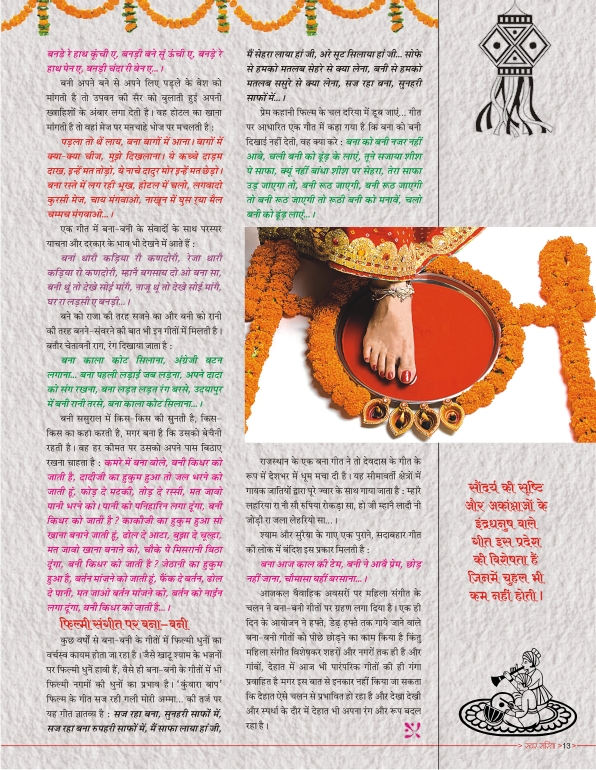 बनड़े रे हाथ कूंची ए, बनड़ी बने सूं ऊंची ए, बनड़े रे
हाथ पेन ए, बनड़ी चंदा री बेन ए...।
बनी अपने बने से अपने लिए पड़ले के वेश को
मांगती है तो उपवन की सैर को बुलाती हुई अपनी
ख्वाहिशों के अंबार लगा देती है। वह होटल का खाना
मांगती है तो वहां मेज पर मनचाहे भोज पर मचलती है :
पड़ला तो थें लाय, बना बागों में आना। बागों में
क्या-क्या चीज, मुझे दिखलाना। ये कच्चे दाड़म
दाख, इन्हें मत तोड़ो, ये नाचे दादुर मोर इन्हें मत छेड़ो।
बना रस्ते में लग रही भूख, होटल में चलो, लगवादो
कुरसी मेज, चाय मंगवाओ, नाखून में घुस गया मैल
चम्मच मंगवाओ...।
एक गीत में बना-बनी के संवादों के साथ परस्पर
याचना और दरकार के भाव भी देखने में आते हैं :
बना थारी कड़िया रौ कणदोरी, रेजा थारी
कड़िया रो कणदोरी, म्हानै बगसाय दो ओ बना सा,
बनी थूं तो देखे सोई मांगै, नाजू थूं तो देखे सोई मांगै,
घर रा लड़सी ए बनड़ी...।
बने को राजा की तरह सजने का और बनी को रानी
की तरह बनने-संवरने की बात भी इन गीतों में मिलती है।
बतौर चेतावनी राग, रंग दिखाया जाता है :
बना काला कोट सिलाना, अंग्रेजी बटन
लगाना... बना पहली लड़ाई जब लड़ना, अपने दादा
को संग रखना, बना लड़त लड़त रंग बरसे, उदयापुर
में बनी रानी तरसे, बना काला कोट सिलाना...।
बनी ससुराल में किस-किस की सुनती है, किस-
किस का कहा करती है, मगर बना है कि उसको बेचैनी
रहती है। वह हर कीमत पर उसको अपने पास बिठाए
रखना चाहता है : कमरे में बना बोले, बनी किधर को
जाती है, दादीजी का हुकुम हुआ तो जल भरने को
जाती हूं, फोड़ दे मटकी, तोड़ दे रस्सी, मत जावो
पानी भरने को। पानी को पनिहारिन लगा दूंगा, बनी
किधर को जाती है? काकीजी का हुकुम हुआ सो
खाना बनाने जाती हूं, ढोल दे आटा, बुझा दे चूल्हा,
मत जावो खाना बनाने को, चौके पे मिसरानी बिठा
दूंगा, बनी किधर को जाती है? जेठानी का हुकुम
हुआ है, बर्तन मांजने को जाती हूं, फैंक दे बर्तन, ढोल
दे पानी, मत जाओ बर्तन मांजने को, बर्तन को नाईन
लगा दूंगा, बनी किधर को जाती है...।
फिल्मी संगीत पर बना-बनी
कुछ वर्षों से बना-बनी के गीतों में फिल्मी धुनों का
वर्चस्व कायम होता जा रहा है। जैसे खाटू श्याम के भज़नों
पर फिल्मी धुनें हावी हैं, वैसे ही बना-बनी के गीतों में भी
फिल्मी नगमों की धुनों का प्रभाव है। 'कुंवारा बाप'
फिल्म के गीत सज रही गली मोरी अम्मा... की तर्ज पर
यह गीत ज्ञातव्य है : सज रहा बना, सुनहरी साफों में,
सज रहा बना रुपहरी साफों में, मैं साफा लाया हां जी,
मैं सेहरा लाया हां जी, अरे सूट सिलाया हां जी... सोफे
से हमको मतलब सेहरे से क्या लेना, बनी से हमको
मतलब ससुरे से क्या लेना, सज रहा बना, सुनहरी
साफों में...।
प्रेम कहानी फिल्म के चल दरिया में डूब जाएं... गीत
पर आधारित एक गीत में कहा गया है कि बना को बनी
दिखाई नहीं देतो, वह क्या करे : बना को बनी नजर नहीं
आवे, चली बनी को ढूंड़ के लाएं, तूने सजाया शीश
पे साफा, क्यूं नहीं बांधा शीश पर सेहरा, तेरा साफा
उड़ जाएगा तो, बनी रूठ जाएगी, बनी रूठ जाएगी
तो बनी रूठ जाएगी तो रूठी बनी को मनावें, चलो
बनी को ढूंढ़ लाएं...।
राजस्थान के एक बना गीत ने तो देवदास के गीत के
रूप में देशभर में धूम मचा दी है। यह सीमावर्ती क्षेत्रों में
गायक जातियों द्वारा पूरे ज्वार के साथ गाया जाता है : म्हारे
लहरिया रा नौ सौ रुपिया रोकड़ा सा, हो जी म्हाने लादौ नी
जोड़ी रा जला लेहरिया सा...।
श्याम और सुरैया के गाए एक पुराने, सदाबहार गीत
की लोक में बंदिश इस प्रकार मिलती है :
बना आज काल की टेम, बनी ने आवे प्रेम, छोड़
नहीं जाना, चौमासा यहीं बरसाना...।
आजकल वैवाहिक अवसरों पर महिला संगीत के
चलन ने बना-बनी गीतों पर ग्रहण लगा दिया है। एक ही
दिन के आयोजन ने हफ्ते, डेढ़ हफ्ते तक गाये जाने वाले
बना-बनी गीतों को पीछे छोड़ने का काम किया है किंतु
महिला संगीत विशेषकर शहरों और नगरों तक ही है और
गांवों, देहात में आज भी पारंपरिक गीतों की ही गंगा
प्रवाहित है मगर इस बात से इनकार नहीं किया जा सकता
कि देहात ऐसे चलन से प्रभावित हो रहा है और देखा देखी
और स्पर्धा के दौर में देहात भी अपना रंग और रूप बदल
रहा है।
सौंदर्य की सृष्टि
और अकांक्षाओं के
इंद्रधनुष वाले
गीत इस प्रदेश
की विशेषता हैं
जिनमें चुहल भी
कम नहीं होती।
> स्वर सरिता >13>